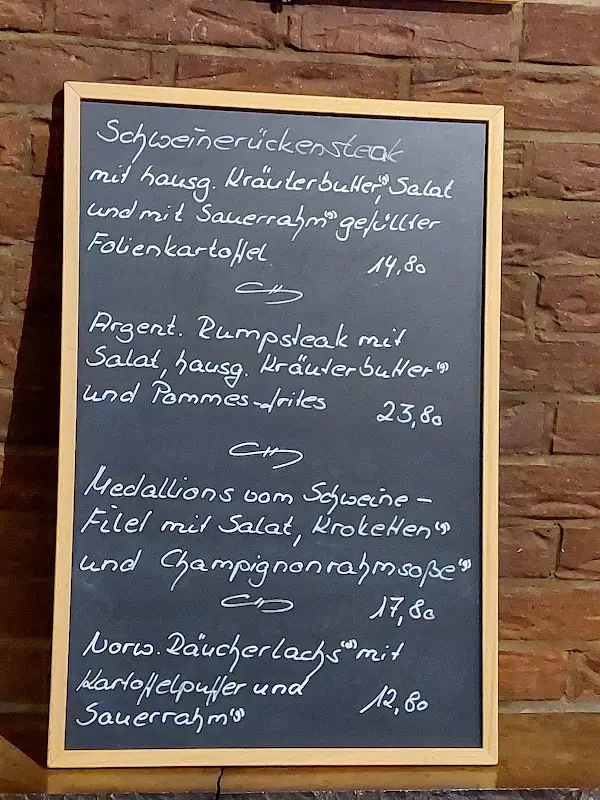 Schweinerückensteak
mit hausg. Kräuterbutter(g), Salat
und mit Sauerrahm(g) gefüllter
Folienkartoffel
14,80
Argent. Rumpsteak mit
Salat, hausg. Kräuterbutter(g)
und Pommes-frites
23,80
Medallions vom Schweine-
Filet mit Salat, Kroketten(g)
und Champignonrahmsoße(g)
17,80
Norw. Räucherlachs mit
Kartoffelpuffer und
12,80
Sauerrahm(g)